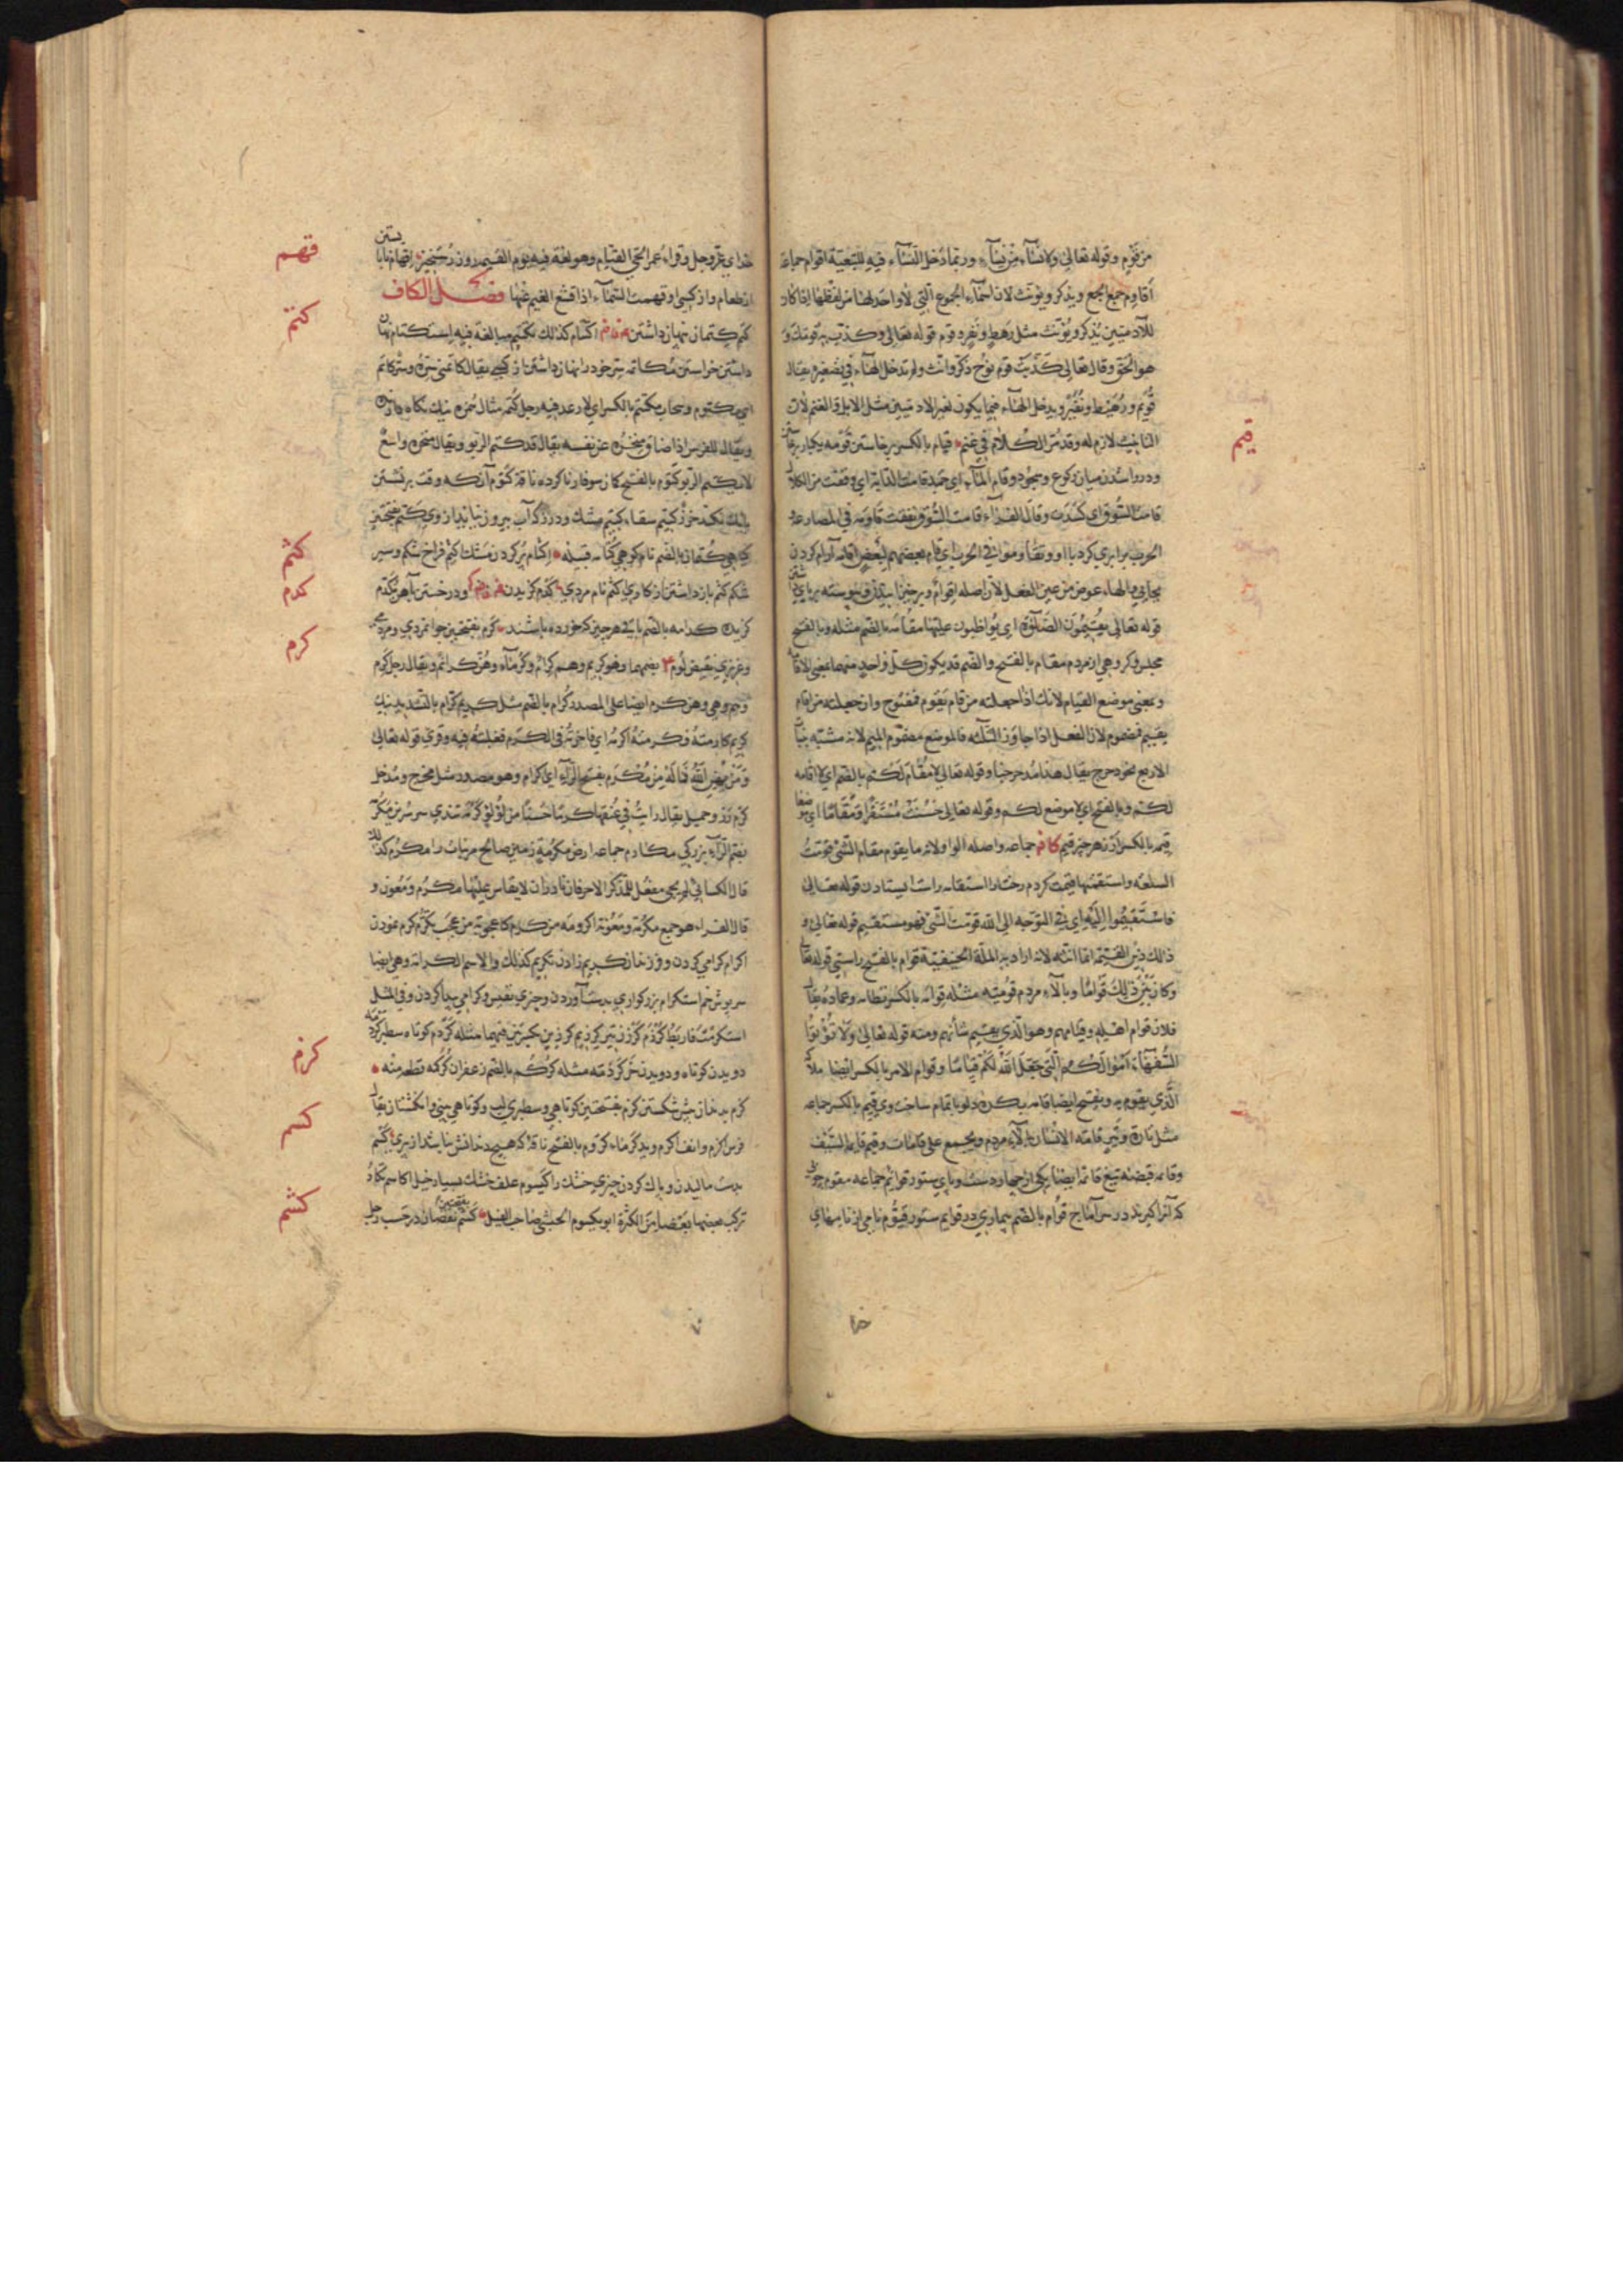 من قوم وقوله تعالى ولا نسآء من نسآء وربما دخل النسآء فيه للتبعية اقوام جماعة
أقاوم جمع الجمع ويذكر ويؤنث لان اسمآء الجموع التي لا واحد لها من لفظها اذا كان
للآدميين يُذكر ويُؤنث مثل رهط ونفر وقوم قوله تعالى وكذب به قومك و
هو الحق وقال تعالى كذبت قوم نوح ذكر وانث ولم تدخل الهآء في تصغيره يقال
قُوَيم ورُهَيط ونُفَير ويدخل الهآء فيما يكون لغير الادميين مثل الابل والغنم لان
التانيث لازم له وقد مر الكلام في غنم قيام بالكسر برخاستن قومه يكبار برخاستن
قيم
ودروا شدن ميان ركوع وسجود وقام المآء اي جمد قامت الدابة اي وقفت من الكلال
قامت السوق اي كسدت وقال الفراء قامت السوق نفقت قاومه في المصارعة
الحرب برابري كرد با او وتقاوموا في الحرب اي قام بعضهم لبعض اقامه آرام كردن
بجايي والهاء عوض من عين الفعل لان اصله اقوام وبرخيزانيدن وپيوسته برپاي داشتن
قوله تعالى يقيمون الصلوة اي يواظبون عليها مقامه بالضم مثله وبالفتح
مجلس وكروهي از مردم مقام بالفتح والضم قد يكون كل واحد منهما بمعنى الاقامه
وبمعنى موضع القيام لانك اذا جعلته من قام يقوم فمفتوح وان جعلته من اقام
يقيم فمضموم لان الفعل اذا جاوز الثلثه فالموضع مضموم الميم لانه مشبه ببنات
الاربع نحو دحرج يقال هذا مدحرجنا وقوله تعالى لا مُقام لكم بالضم اي لا اقامه
لكم وبالفتح اي لا موضع لكم وقوله تعالى حسنت مستقرا ومقاما اي موضعا
قيمه بالكسر ارز هر چيز قيم كا فم جماعه واصله الواو لانه ما يقوم مقام الشئ قومت
السلعة واستقمتها قيمت كردم رخت را استقامه راست ايستادن قوله تعالى
فاستقيموا اليه اي في التوجه الى الله قومت الشئ فهو مستقيم قوله تعالى و
ذالك دين القيمة انما انثه لانه اراد به الملة الحنيفية قوام بالفتح راستي قوله تعا
وكان بين ذلك قواما وبالآء مردم قوميه مثله قوامه بالكسر نظامه وعماده يقال
فلان قوام اهله وقيامهم وهو الذي يقيم شأنهم ومنه قوله تعالى ولا تؤتوا
السفهآء اموالكم التي جعل الله لكم قياما وقوام الامر بالكسر ايضا ملاك
الذي يقوم به وبفتح ايضا قامه بيكره دلو با تمام ساخت وي قيم بالكسر جماعه
مثل تارة وتير قامه الانسان بالآء مردم ويجمع على قامات وقيم قايم السيف
وقائمه قبضه تيغ قائمه ايضا يكي از چهار دست وپاي ستور قوائم جماعه مقوم چوبي
كه آنرا كيرند درس آماج قوام بالضم بيماري در قوايم ستور قيوم نامي از نامهاي
خدا
خداي عز وجل وقراء عمر الحي القيام وهو لغة فيه يوم القيمه روز رستخيز اقهام نابايستن
قهم
از طعام واز كسي اوقهمت السمآء اذا اقشع الغيم عنها فصل الكاف
كتم كتمان نهان داشتن اكتتام كذلك تكتيم مبالغة فيه استكتام نهان
كتم
داشتن خواستن مكاتمه سر خود را نهان داشتن از كسي يقال كاتمني سره وسر كاتم
اي مكتوم وسحاب مكتتم بالكسر اي لا رعد فيه رجل كتمه مثال همزه نيك نكاه دارنده
ويقال للفرس اذا ضاق منخره عن نفسه يقال قد كتم الربو ويقال منخره واسع
لا يكتم الربو كتوم بالفتح كمان سوفار ناكرده ناقة كتوم آنكه وقت برنشستن
بانك نكند خرز كتيم سقاء كتيم مشك ودرز كه آب بيرون نيايد از وي كتم بفتحتين
كياهي كتمان بالضم نام كوهي كتامه قبيله اكثام پر كردن مشك كثم فراخ شكم وسير
كثم
شكم كثم باز داشتن از كاري اكثم نام مردي كدم كزيدن ودرخستن بآهن تكدم
كدم
كزيدن كدامه بالضم باقي هر چيز كه خورده باشند كرم بفتحتين جوانمردي ومردمي
كرم
وعزيزي نقيض لوم بضمهما وهو كريم وهم كرام وكرمآء وهن كرائم ويقال رجل كرم
وهم وهي وهن كرم ايضا على المصدر كُرام بالضم مثل كريم كرّام بالتشديد نيك
كريم كارمته فكرمته اكرمه اي فاخرته في الكرم فغلبته فيه وقرئ قوله تعالى
ومن يهن الله فما له من مُكرَم بفتح الرآء اي اكرام وهو مصدر مثل مخرج ومدخل
كرم رز وحميل يقال رايت في عنقها كرما حسنا من لؤلؤ
بضم الرآء بزركي مكارم جماعه ارض مكرمة زمين صالح مر نبات را مكرم كذلك
قال الكسائي لم يجئ مفعل للمذكر الا حرفان نادران لا يقاس عليهما مكرم ومعون و
قال الفراء هو جمع مكرمة ومعونة اكرومه من كرم كاعجوبة من عجب تكرم كرم نمودن
اكرام كرامي كردن وفرزندان كريم زادن تكريم كذلك والاسم الكرامه وهي ايضا
سرپوش خم استكرام بزركواري بدست آوردن وچيزي نفيس وكرامي پيدا كردن وفي المثل
استكرمت فاربط
كرزم
دويدن كوتاه ودويدن خر كردمه مثله كركم بالضم زعفران كركمه قطعه منه
كزم بدندان پيش شكستن كزم بفتحتين كوتاهي وسطبري لب وكوتاهي بيني وانكشتان يقال
فرس اكزم وانف اكزم ويد كزماء كزوم بالفتح ناقه كه هيچ دندانش نباشد از پيري كسم
كسم
بدست ماليدن وپاك كردن چيزي خشك را كيسوم علف خشك بسيار خيل اكاسم تكاد
تركب بعضها بعضا من الكثرة ابو يكسوم الحبشي صاحب الفيل كشم بفتحتين نقصان در حسب رجل
كشم